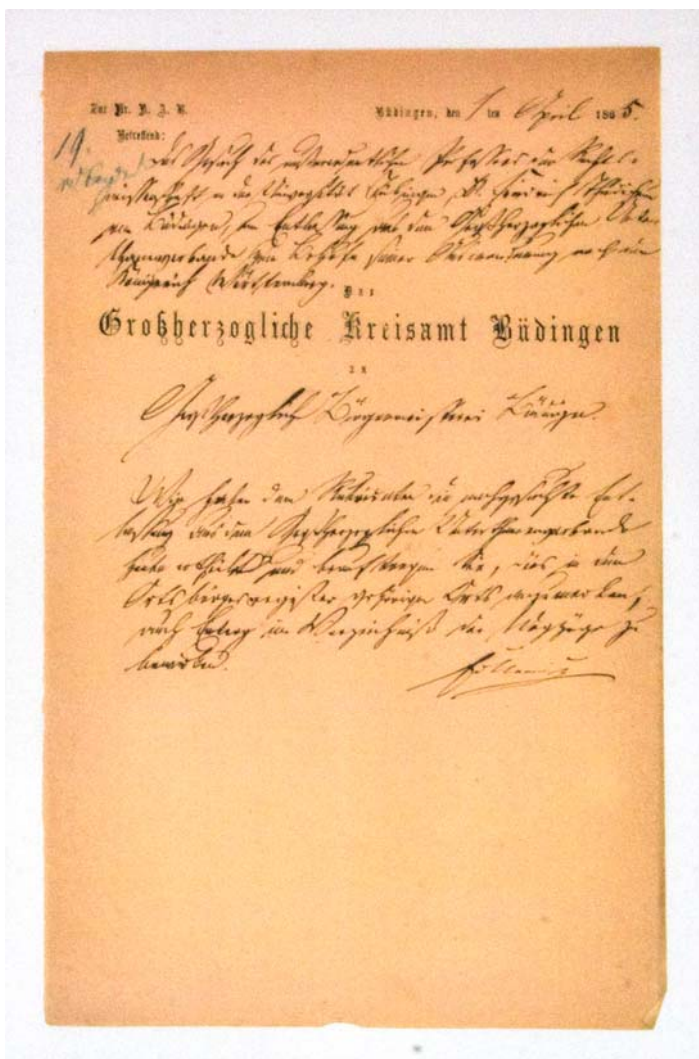 Zur Nr. B. J. B. Büdingen, den 1 ten April 1865.
19. Betreffend:
das Gesuch des außerordentlichen Professors der Rechts-
wissenschaft an der Universität Tübingen, Dr.
von Büdingen, um Entlassung aus dem Großherzoglichen Unter-
thanenverbande zum Behufe seiner Auswanderung nach dem
Königreich Württemberg.
Das
Großherzogliche Kreisamt Büdingen
an
Großherzogliche Bürgermeisterei Büdingen.
Wir haben dem Rubricaten die nachgesuchte Ent-
lassung aus dem Großherzoglichen Unterthanenverbande
heute ertheilt und beauftragen Sie, dies in dem
Ortsbürgerregister Orts anzumerken,
auch Eintrag im Verzeichniß der Wegzüge zu
bewirken.